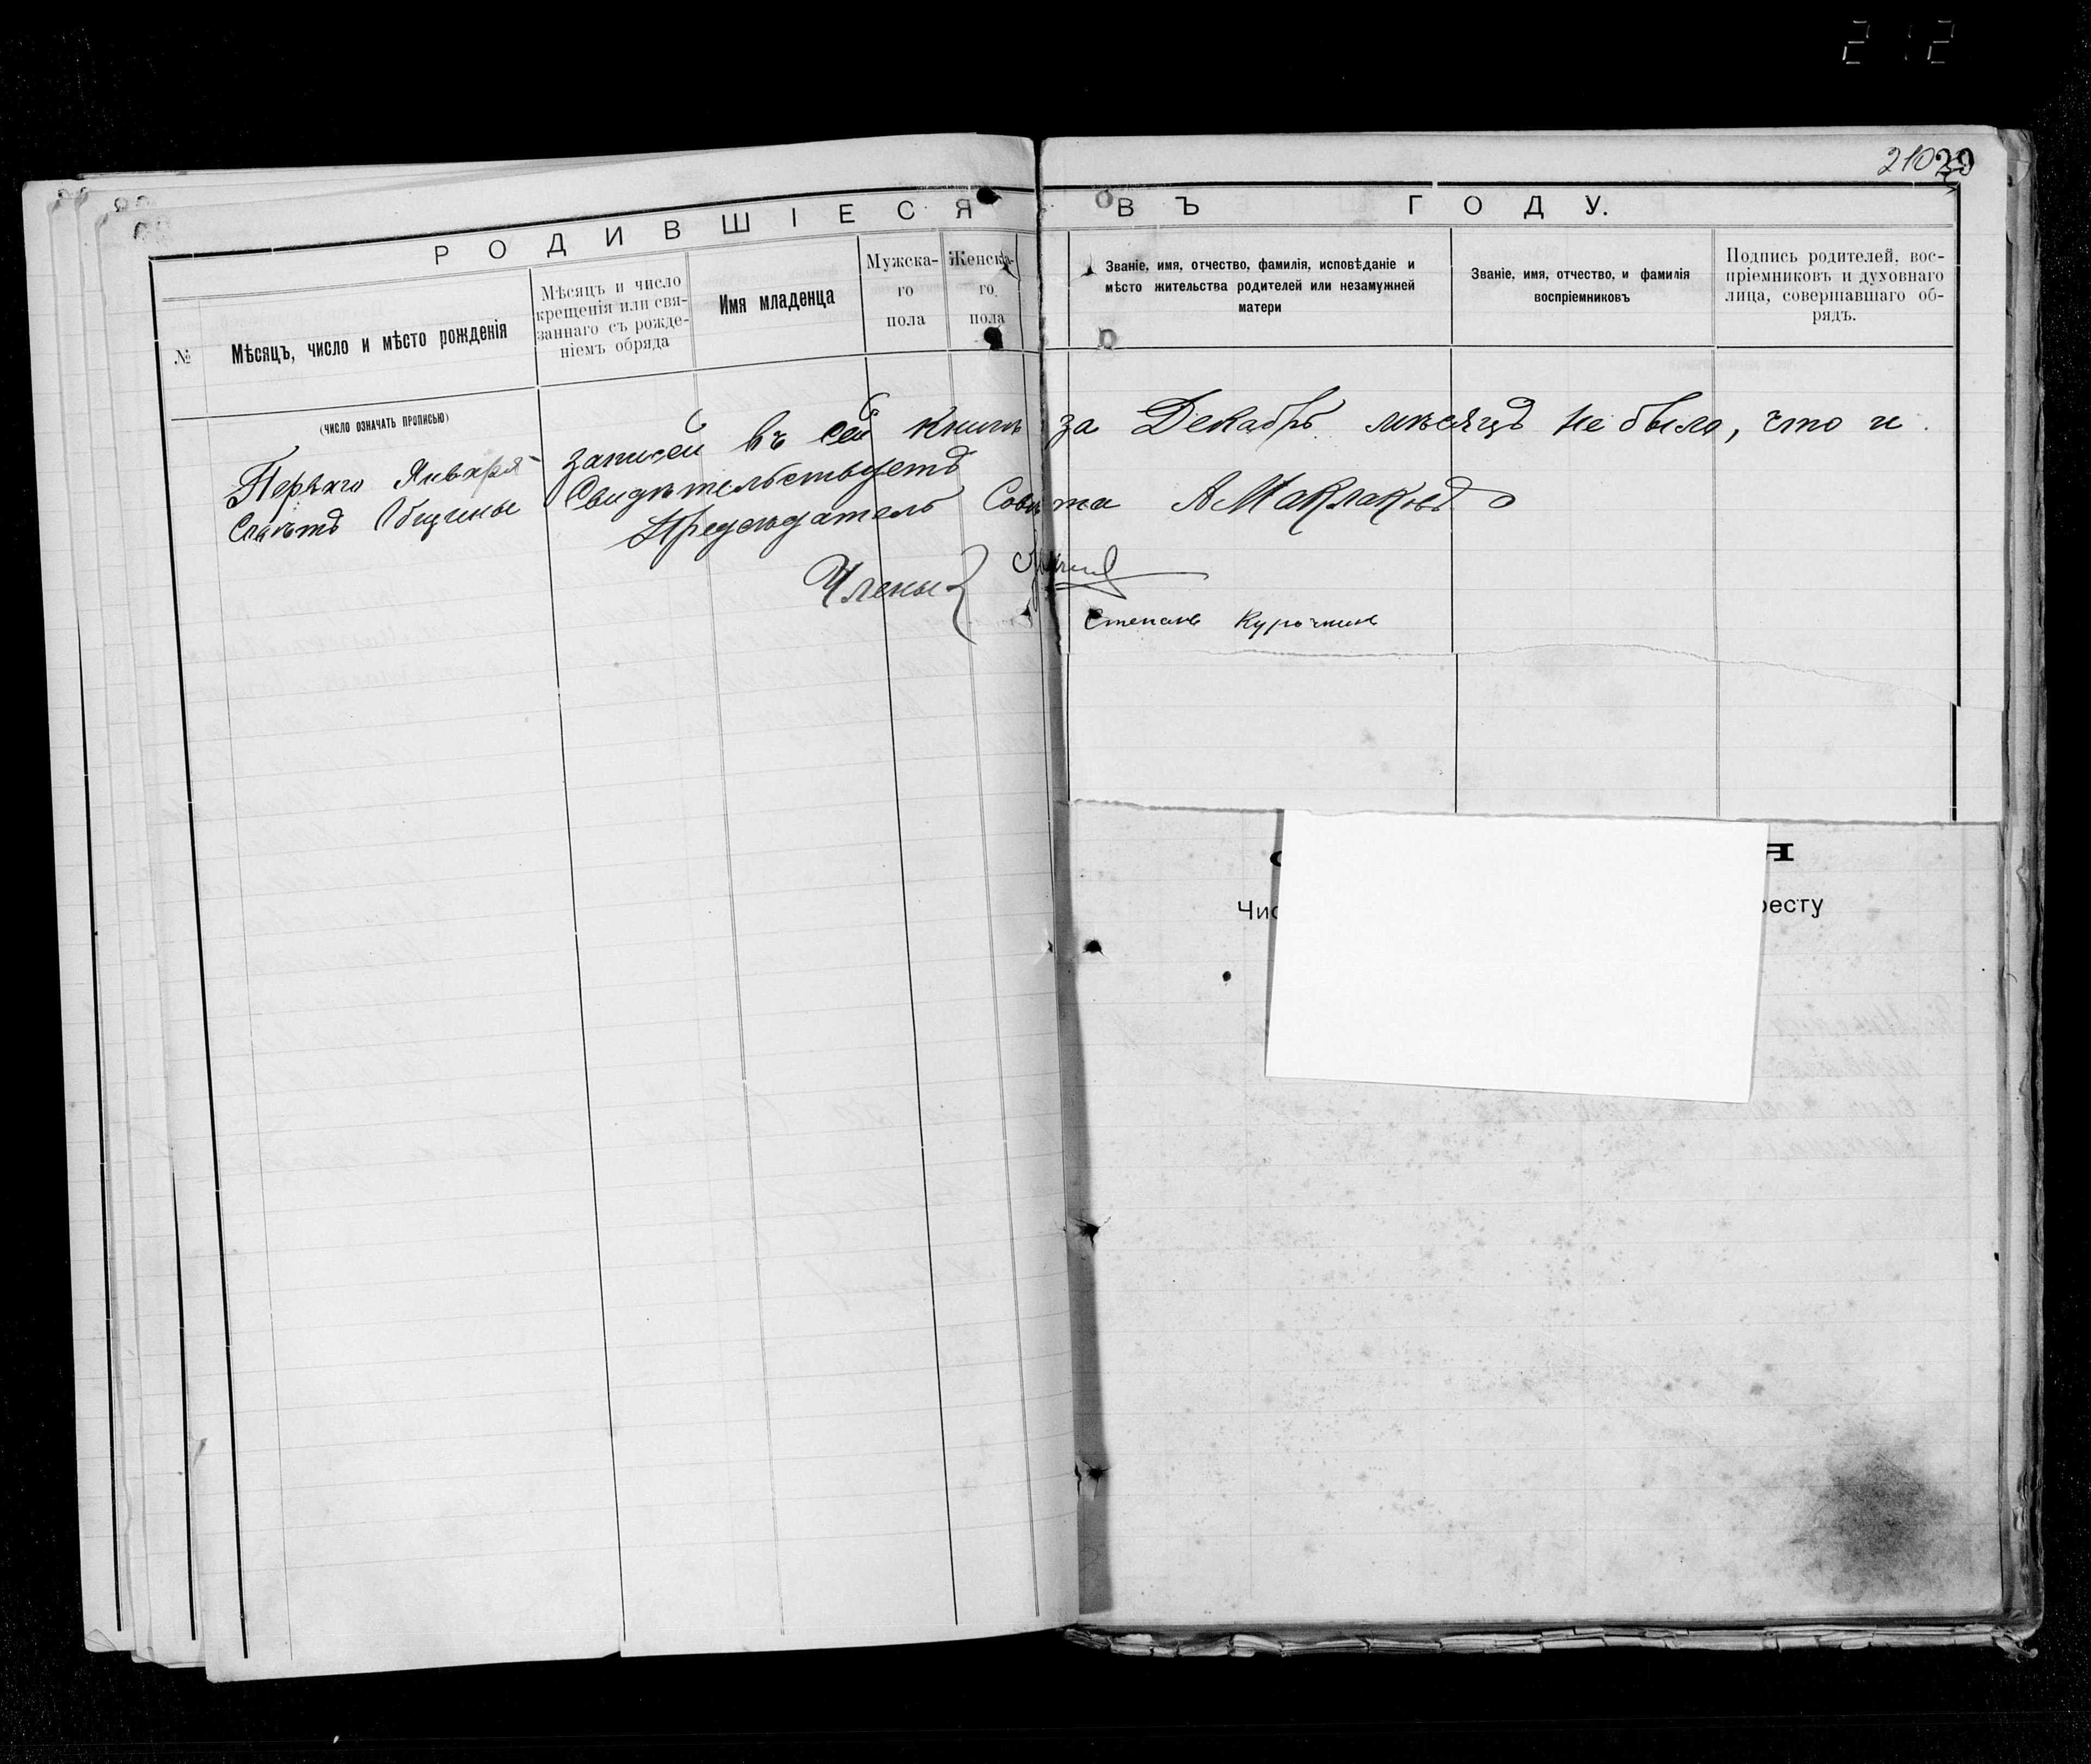 212
210
20
РОДИВШІЕСЯ ВЪ ГОДУ.
№
Мѣсяцъ, число и мѣсто рожденія
(число означать прописью)
Мѣсяцъ и число
крещенія или свя-
заннаго съ рожде-
ніемъ обряда
Имя младенца
Мужска-
го
пола
Женска-
го
пола
Званіе, имя, отчество, фамилія, исповѣданіе и
мѣсто жительства родителей или незамужней
матери
Званіе, имя, отчество, и фамилія
воспріемниковъ
Подпись родителей, вос-
пріемниковъ и духовнаго
лица, совершавшаго об-
рядъ.
Перваго Января записей въ сей книгѣ за Декабрь мѣсяцъ не было, что и
Совѣтъ Общины Свидѣтельствуетъ
Предсѣдатель Совѣта А Маклаковъ
Члены
Степанъ Курочкинъ
Я
Чис
ресту